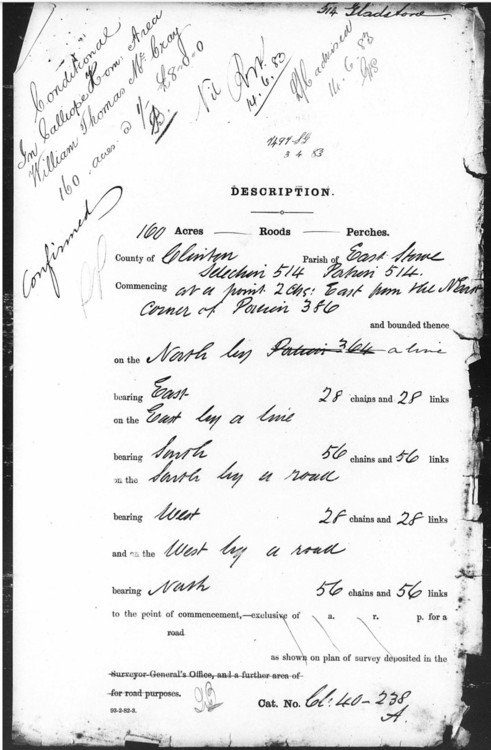 514 Gladstone
Conditional
In Calliope Hom: Area
William Thomas McCray
160 acres @ 1/- £8-0-0
Confirmed
Nil
14.6.83
advised
14.6.83
7497
3 4 83
DESCRIPTION.
160 Acres — Roods — Perches.
County of Clinton Parish of East Stowe
Selection 514 Portion 514.
Commencing at a point 2 Chs: East from the N East
Corner of Portion 386
and bounded thence
on the North by Portion 364 a line
bearing East 28 chains and 28 links
on the East by a line
bearing South 56 chains and 56 links
on the South by a road
bearing West 28 chains and 28 links
and on the West by a road
bearing North 56 chains and 56 links
to the point of commencement,—exclusive of a. r. p. for a
road
as shown on plan of survey deposited in the
Surveyor-General's Office, and a further area of
for road purposes.
Cat. No. Cl: 40-238
A.